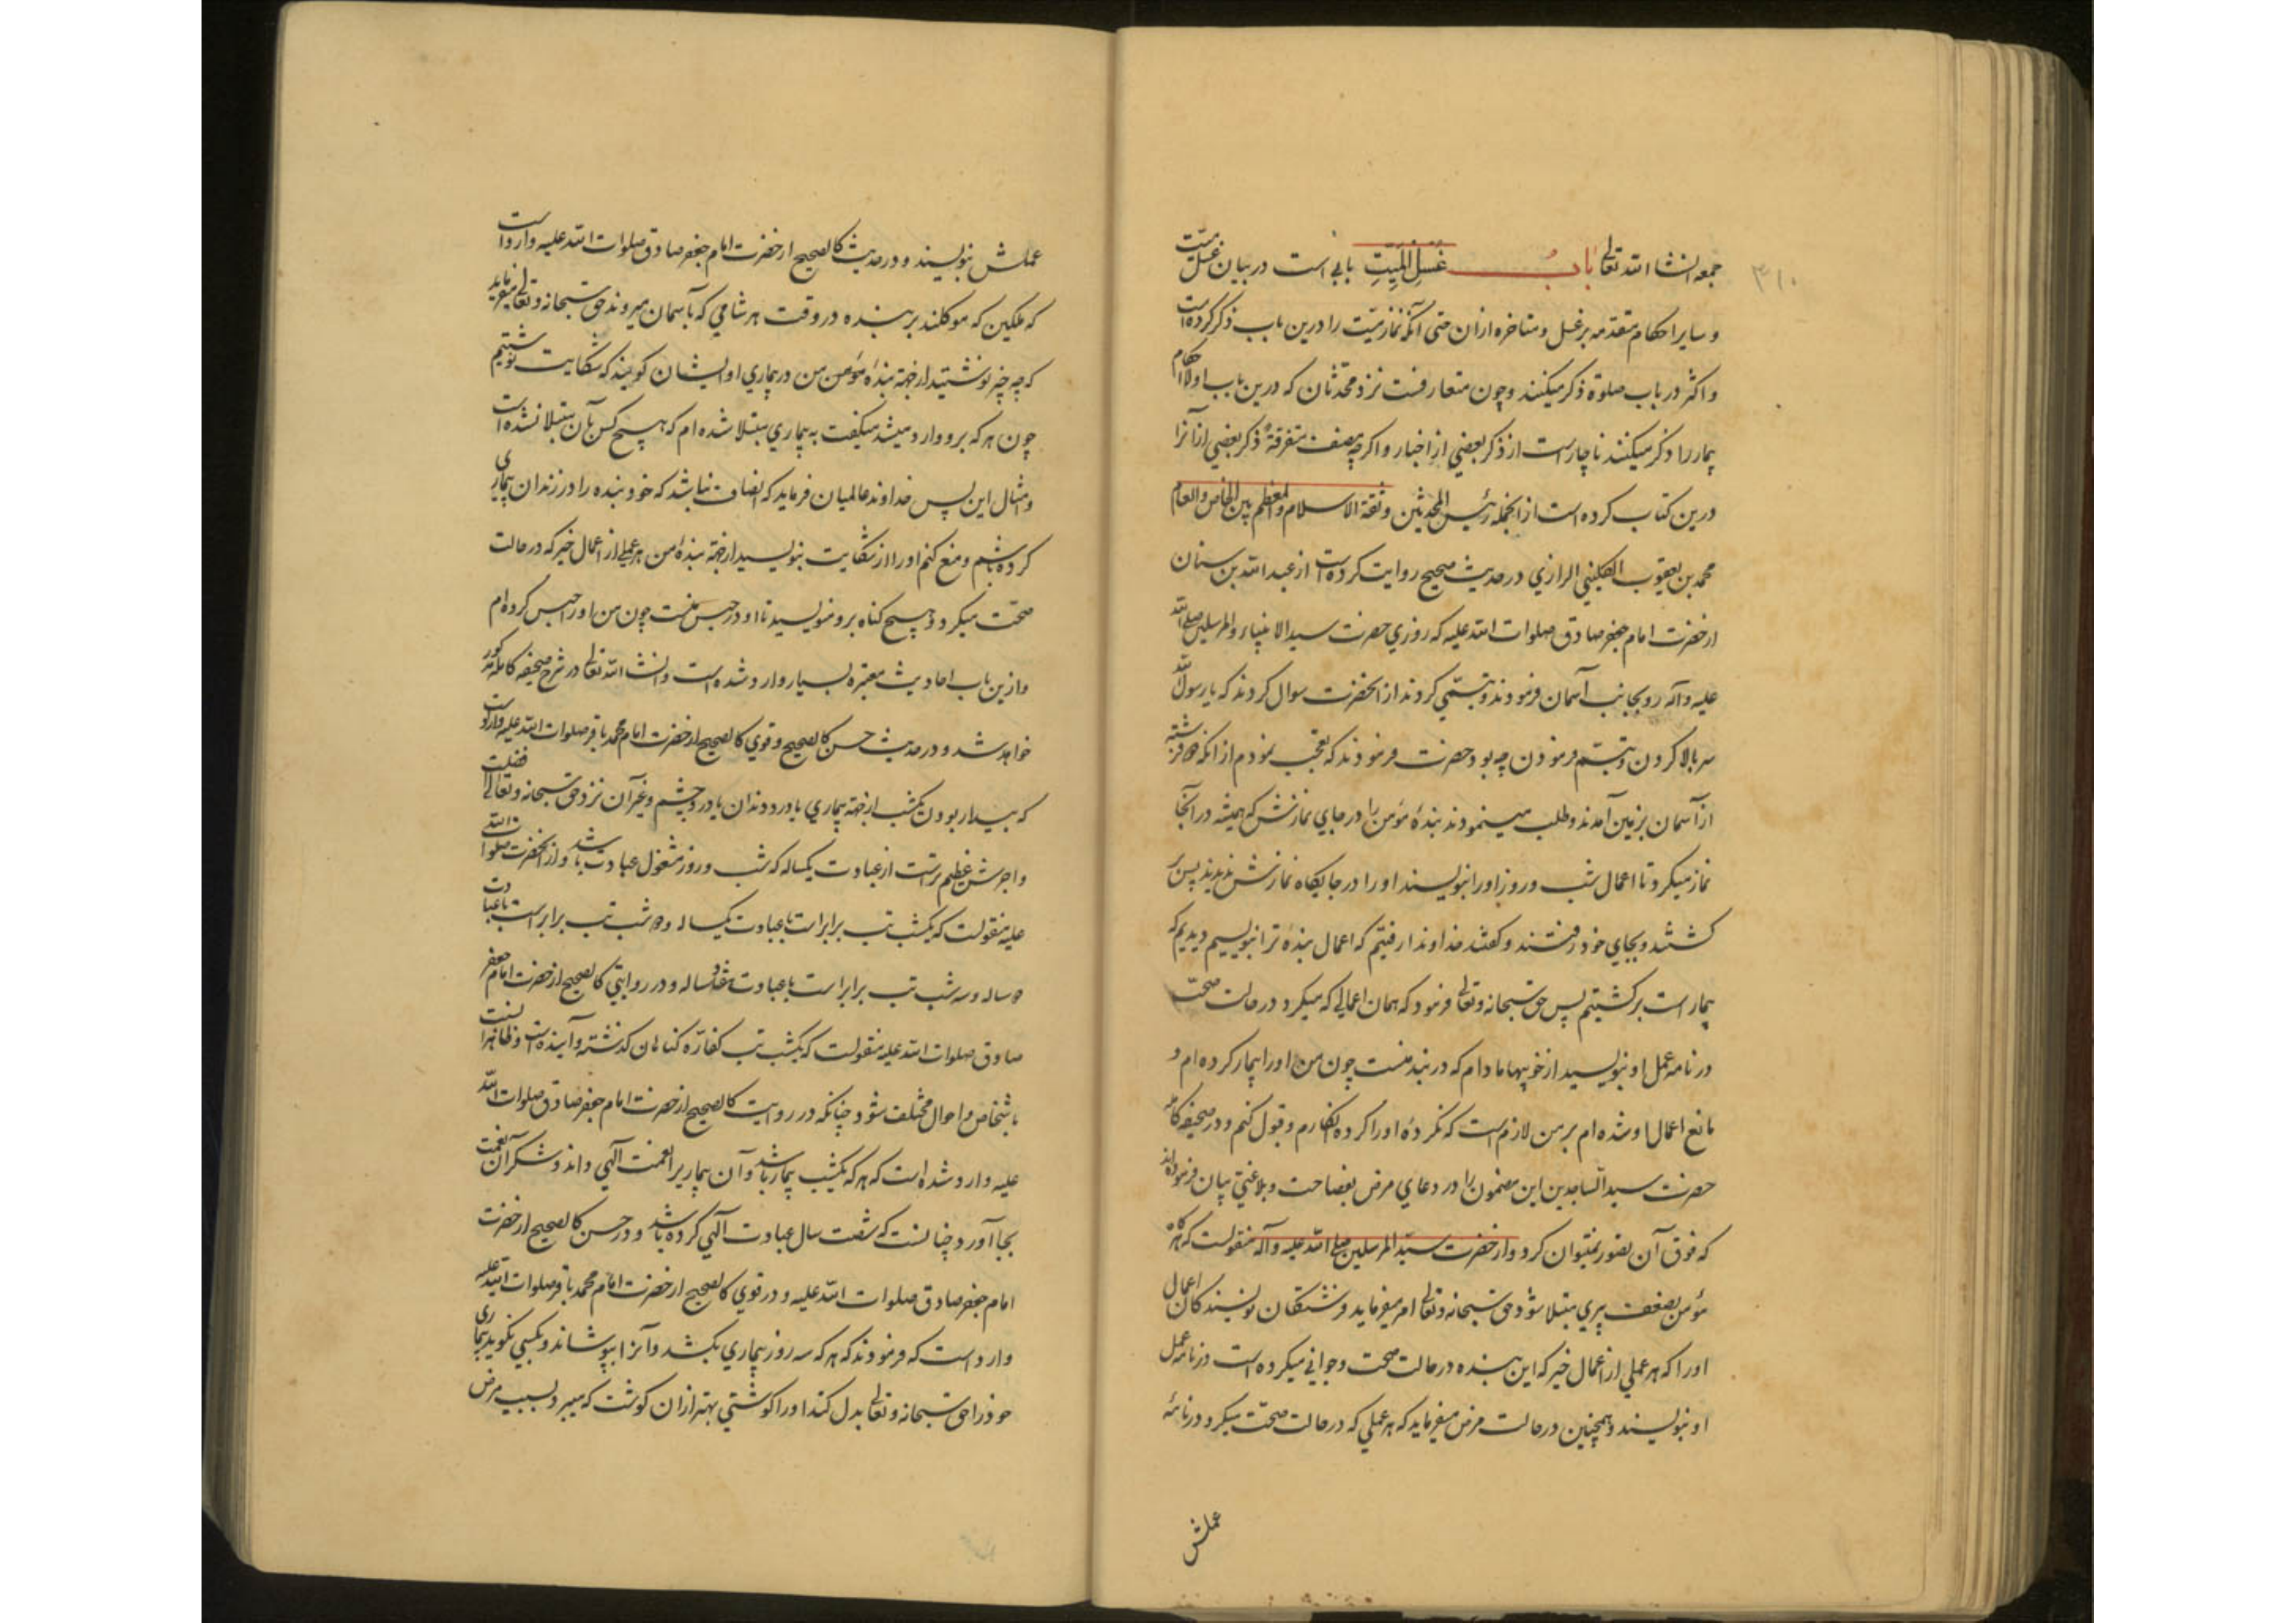 ۳۱۰
جمعه انشاء الله تعالی باب غسل المیت بابی است در بیان غسل میت
و سایر احکام متقدمه بر غسل و متاخره از ان حتی آنکه نماز میت را درین باب ذکر کرده است
و اکثر در باب صلوة ذکر میکنند و چون متعارفست نزد محدثان که درین باب اولا احکام
بیمار را ذکر میکنند ناچار است از ذکر بعضی از اخبار و اکر چه مصنف متفرقة ذکر بعضی از آنرا
درین کتاب کرده است از انجمله رئیس المحدثین و ثقة الاسلام والمعظم بین الخاص والعام
محمد بن یعقوب الکلینی الرازی در حدیث صحیح روایت کرده است از عبد الله بن سنان
از حضرت امام جعفر صادق صلوات الله علیه که روزی حضرت سید الانبیاء والمرسلین صلی الله
علیه وآله رو بجانب آسمان فرمودند و تبسمی کردند از انحضرت سوال کردند که یا رسول الله
سر بالا کردن و تبسم فرمودن چه بود حضرت فرمودند که تعجب نمودم از انکه دو فرشته
از آسمان بزمین آمدند و طلب مینمودند بندهٔ مؤمن را در جای نمازش که همیشه در انجا
نماز میکرد تا اعمال شب و روز او را بنویسند او را در جایکاه نمازش ندیدند پس بر
کشتند و بجای خود رفتند و کفتند خداوندا رفتیم که اعمال بندهٔ ترا بنویسیم دیدیم که
بیمار است برکشتیم پس حق سبحانه وتعالی فرمود که همان اعمالی که میکرد در حالت صحت
در نامه عمل او بنویسید از خوبیها مادام که در بند منست چون من او را بیمار کرده ام و
مانع اعمال او شده ام بر من لازم است که نکردهٔ او را کرده انکارم و قبول کنم و در صحیفه کامله
حضرت سید الساجدین این مضمون را در دعای مرض بفصاحت و بلاغتی بیان فرموده اند
که فوق آن تصور نمیتوان کرد و از حضرت سید المرسلین صلی الله علیه وآله منقولست که هر کاه
مؤمن بضعف پیری مبتلا شود حق سبحانه وتعالی امر میفرماید فرشتکان نویسندکان اعمال
او را که هر عملی از اعمال خیر که این بنده در حالت صحت و جوانی میکرده است در نامه عمل
او بنویسند و همچنین در حالت مرض میفرماید که هر عملی که در حالت صحت میکرد در نامهٔ
عملش
عملش بنویسند و در حدیث کالصحیح از حضرت امام جعفر صادق صلوات الله علیه وارد است
که ملکین که موکلند بر بنده در وقت هر شامی که بآسمان میروند حق سبحانه وتعالی میفرماید
که چه چیز نوشتید از جهة بندهٔ مؤمن من در بیماری او ایشان کویند که شکایت نوشتیم
چون هر که برو وارد میشد میکفت به بیماری مبتلا شده ام که هیچ کس بآن مبتلا نشده است
و مثال این پس خداوند عالمیان فرماید که انصاف نباشد که خود بنده را در زندان بیماری
کرده باشم و منع کنم او را از شکایت بنویسید از جهة بندهٔ من هر عملی از اعمال خیر که در حالت
صحت میکرد و هیچ کناه برو ننویسید تا او در حبس منست چون من او را حبس کرده ام
و ازین باب احادیث معتبره بسیار وارد شده است و انشاء الله تعالی در شرح صحیفه کامله مذکور
خواهد شد و در حدیث حسن کالصحیح و قوی کالصحیح از حضرت امام محمد باقر صلوات الله علیه وارد است
که بیدار بودن یکشب از جهة بیماری یا درد دندان یا درد چشم و غیر آن نزد حق سبحانه وتعالی فضلیت
و اجرش عظیم تر است از عبادت یکساله که شب و روز مشغول عبادت باشد و از انحضرت صلوات الله
علیه منقولست که یکشب تب برابر است با عبادت یکساله و دو شب تب برابر است با عبادت
دو ساله و سه شب تب برابر است با عبادت هفتاد ساله و در روایتی کالصحیح از حضرت امام جعفر
صادق صلوات الله علیه منقولست که یکشب تب کفارهٔ کناهان کذشته و آینده است و ظاهرا نسبت
باشخاص و احوال مختلف شود چنانکه در روایت کالصحیح از حضرت امام جعفر صادق صلوات الله
علیه وارد شده است که هر که یکشب بیمار باشد و آن بیماریرا نعمت آلهی داند و شکر آن نعمت
بجا آورد چنانست که شصت سال عبادت آلهی کرده باشد و در حسن کالصحیح از حضرت
امام جعفر صادق صلوات الله علیه و در قوی کالصحیح از حضرت امام محمد باقر صلوات الله علیه
وارد است که فرمودند که هر که سه روز بیماری بکشد و آنرا بپوشاند و بکسی نکوید بیماری
خود را حق سبحانه وتعالی بدل کند او را کوشتی بهتر از ان کوشت که میبرد بسبب مرض